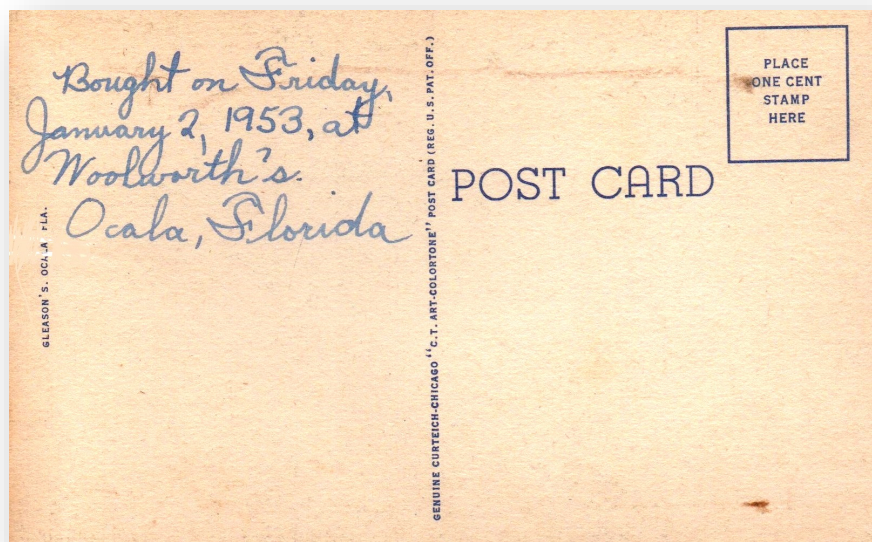 Bought on Friday,
January 2, 1953, at
Woolworth's.
Ocala, Florida
GLEASON'S. OCALA FLA.
GENUINE CURTEICH-CHICAGO "C.T. ART-COLORTONE" POST CARD (REG. U.S. PAT. OFF.)
POST CARD
PLACE
ONE CENT
STAMP
HERE